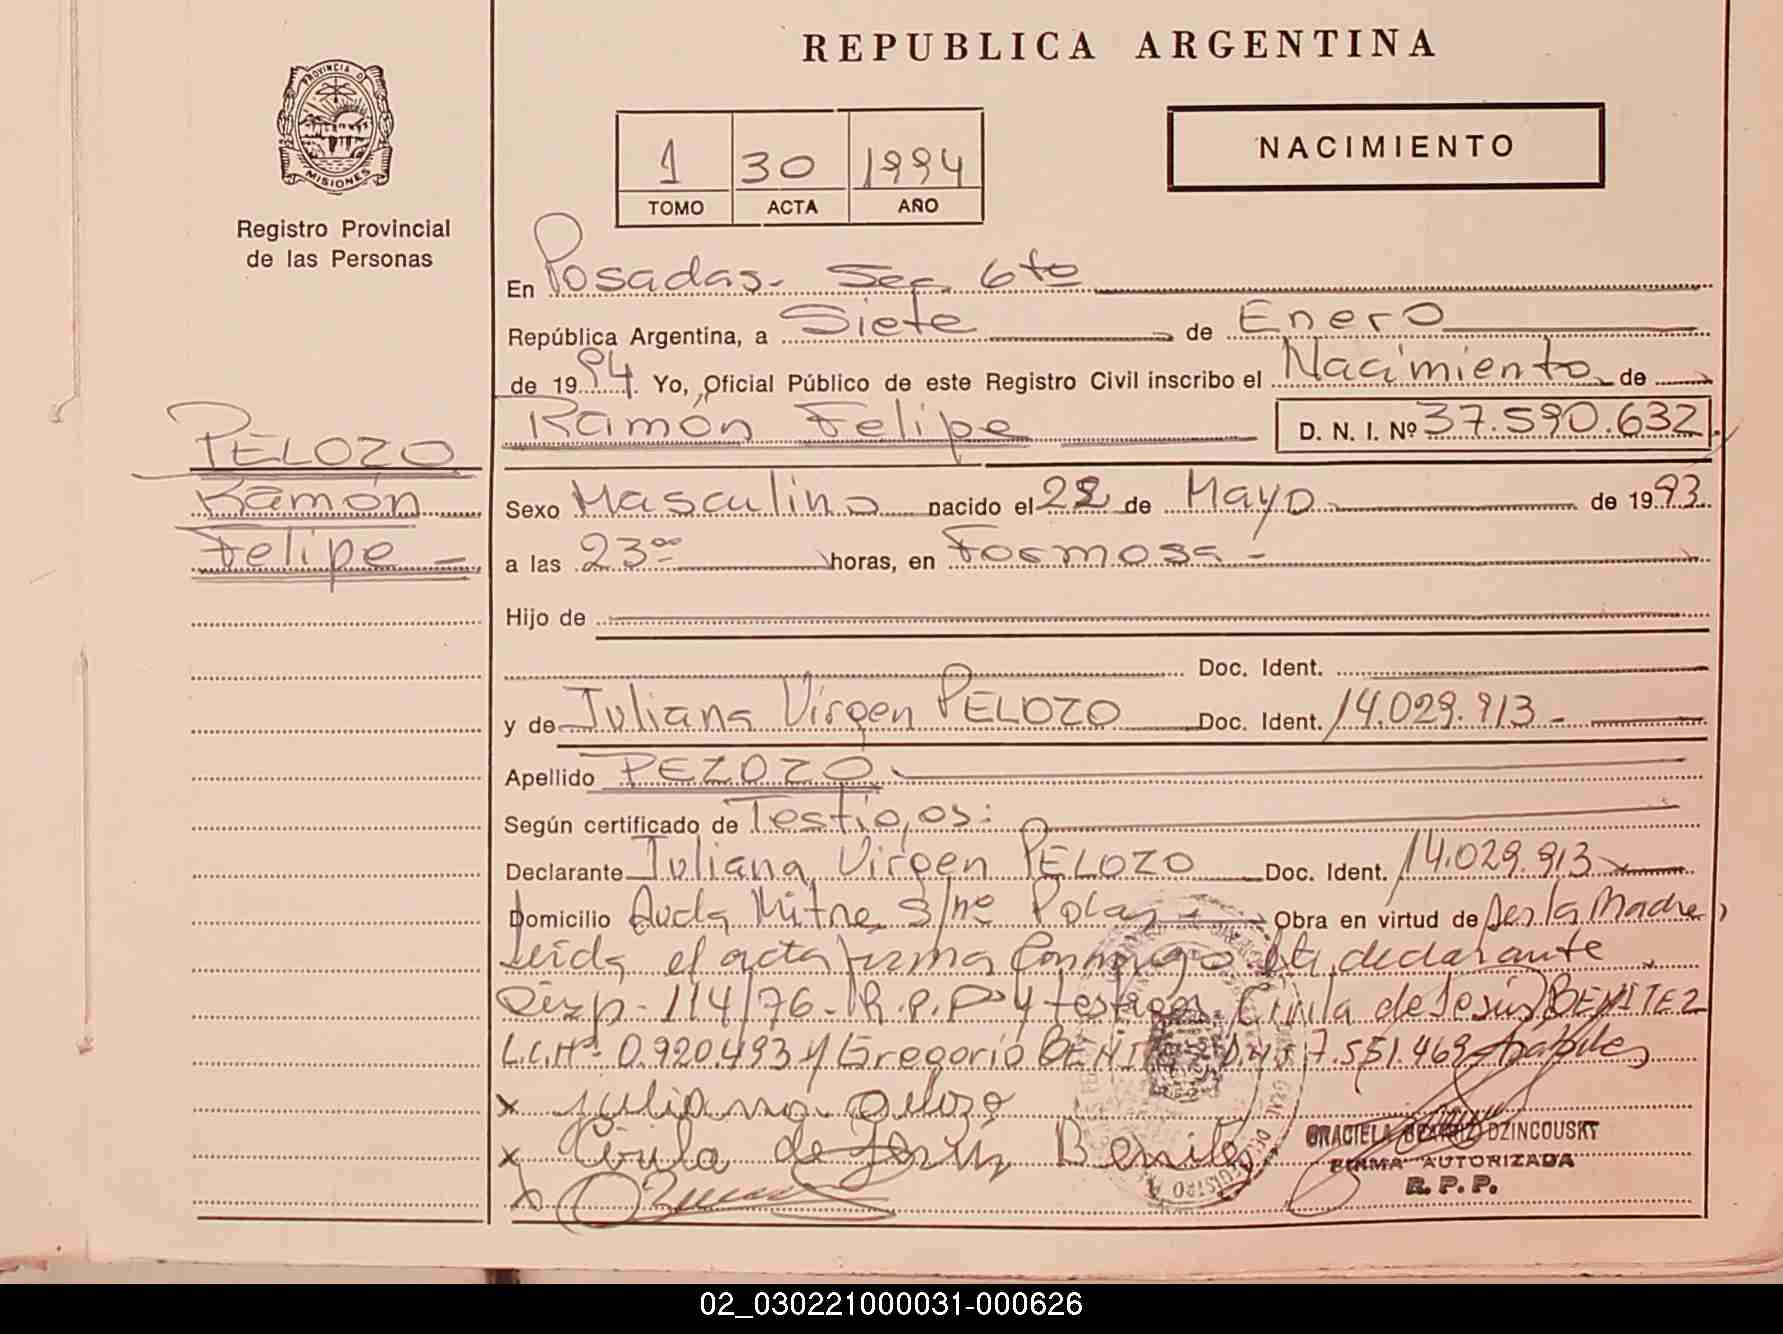 REPUBLICA ARGENTINA
PROVINCIA D
MISIONES
Registro Provincial
de las Personas
1 30 1994
TOMO ACTA AÑO
NACIMIENTO
En Posadas - Sec 6to
República Argentina, a Siete de Enero
de 1994. Yo, Oficial Público de este Registro Civil inscribo el Nacimiento de
Ramón Felipe D. N. I. Nº 37.590.632
PELOZO
Ramón
Felipe -
Sexo Masculino nacido el 22 de Mayo de 1993
a las 23 00 horas, en Formosa -
Hijo de
Doc. Ident.
y de Juliana Virgen PELOZO Doc. Ident. 14.029.913 -
Apellido PELOZO
Según certificado de Testigos:
Declarante Juliana Virgen PELOZO Doc. Ident. 14.029.913
Domicilio Avda Mitre s/nº Obra en virtud de Ser la Madre
Leida el acta firma conmigo la declarante
Disp - 114/76 - R.P.P y testigos Cirila de Jesús BENITEZ
L.C.Nº 0.920.493 y Gregorio 7.551.469 habiles
x juliana pelozo
x Cirila de Jesus Benitez
x
GRACIELA BEATRIZ DZINCOUSKY
FIRMA AUTORIZADA
R. P. P.
02_030221000031-000626